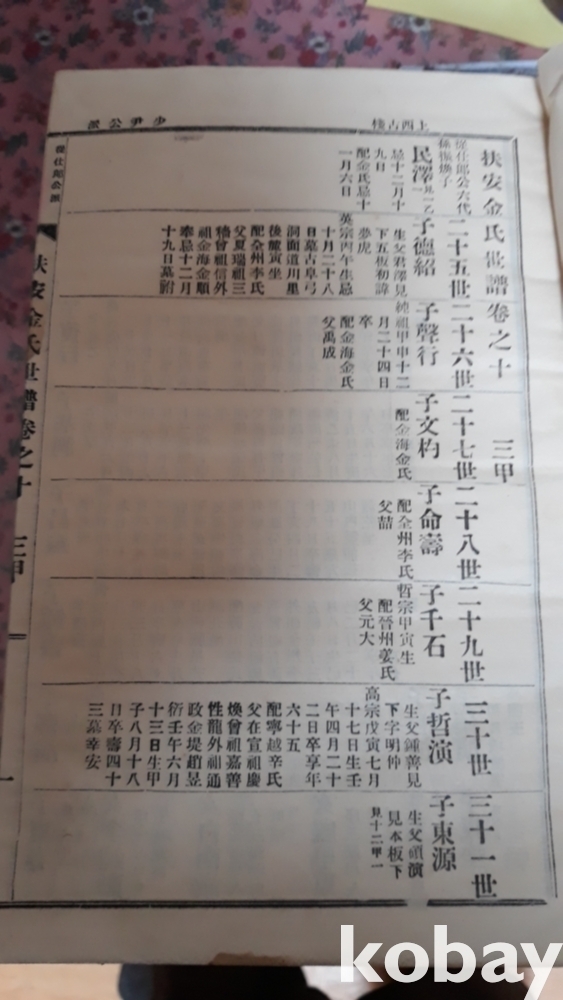 上西古棧
少尹公派
扶安金氏世譜卷之十 三甲
從仕郎公六代
孫振煥子
民澤
忌十二月十
九日
配金氏忌十
一月六日
二十五世
子德紹
生父君澤見
下五板初諱
夢虎
英宗丙午生忌
十月二十八
日墓古阜弓
洞面道川里
後麓寅坐
配全州李氏
父夏瑞祖三
穡曾祖信外
祖金海金順
奉忌十二月
十九日墓祔
二十六世
子聲行
純祖甲申十二
月二十四日
卒
配金海金氏
父禹成
二十七世
子文杓
配金海金氏
二十八世
子命壽
配全州李氏
父喆
二十九世
子千石
哲宗甲寅生
配晉州姜氏
父元大
三十世
子哲演
生父鍾善見
下字明仲
高宗戊寅七月
十七日生壬
午四月二十
二日卒享年
六十五
配寧越辛氏
父在宣祖慶
煥曾祖嘉善
性龍外祖通
政金堤趙昱
衍壬午六月
十三日生甲
子八月十八
日卒壽四十
三墓幸安
三十一世
子東源
生父碩演
見本板下
見十二甲一
從仕郎公派
扶安金氏世譜卷之十 三甲
一
kobay